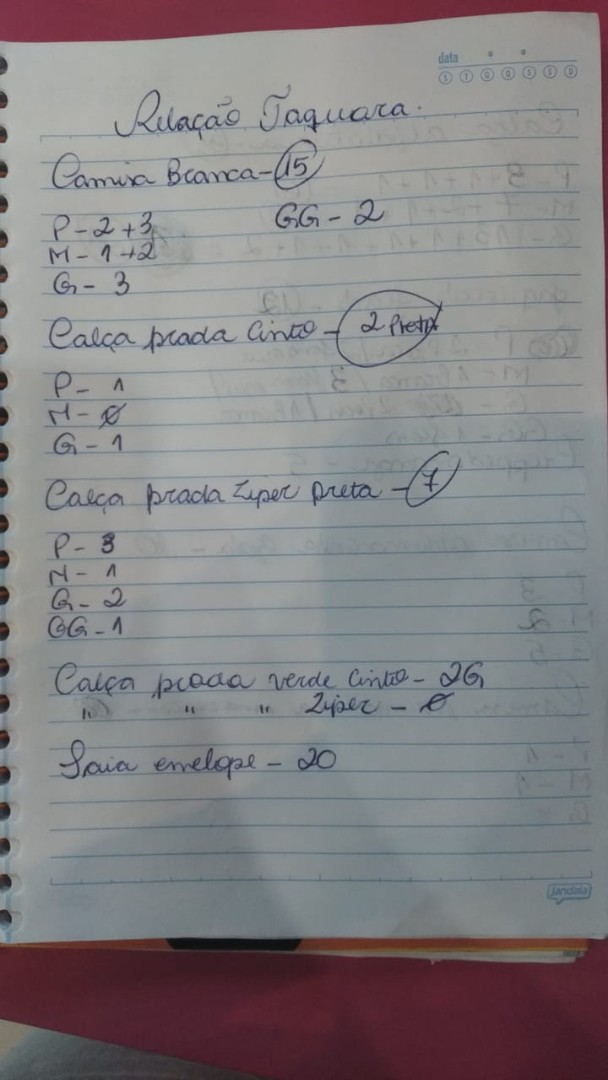 data
S T Q Q S S D
Relação Taquara.
Camisa Branca - 15
P - 2 + 3 GG - 2
M - 1 + 2
G - 3
Calça prada Cinto - 2 Preta
P - 1
M - 0
G - 1
Calça prada Ziper preta - 7
P - 3
M - 1
G - 2
GG - 1
Calça prada verde Cinto - 2G
" " " Ziper - 0
Saia envelope - 20
jandaia